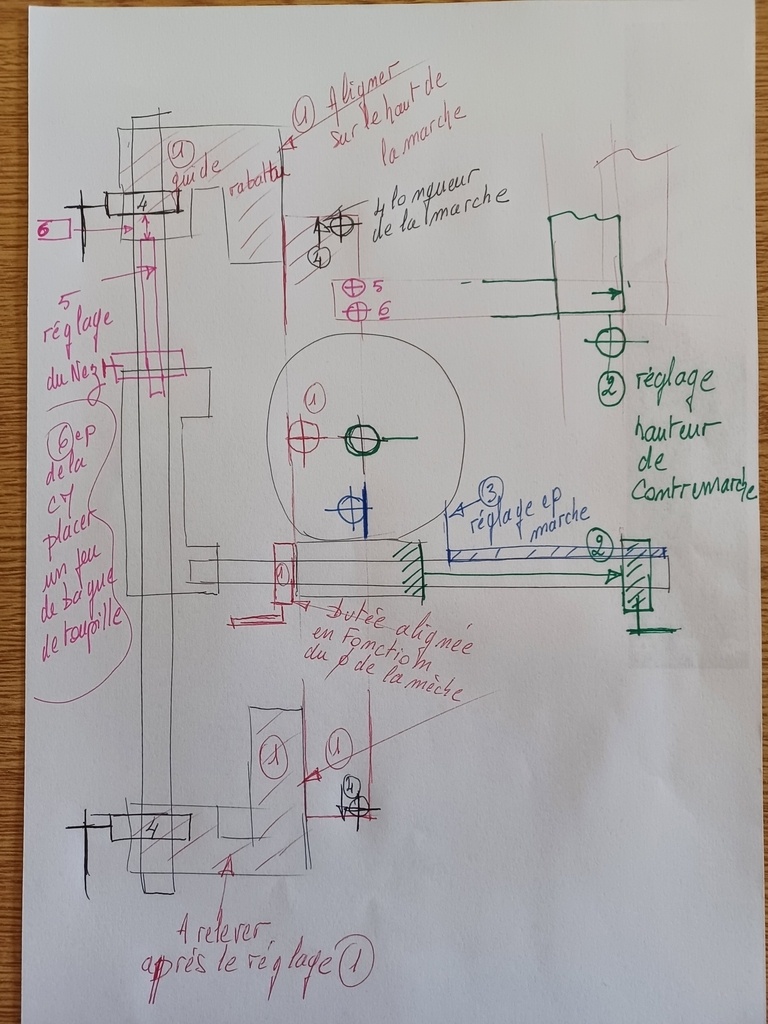 ① Aligner
sur le haut de
la marche
①
guide rabattu
4
6
4 longueur
de la marche
④
5
6
5
réglage
du Nez
②
réglage
hauteur
de
Contremarche
①
⑥ ep
de la
CM
placer
un jeu
de bague
de toupille
③
réglage ep
marche
②
①
butée alignée
en Fonction
du ϕ de la mèche
①
①
④
4
A relever
aprés le réglage ①